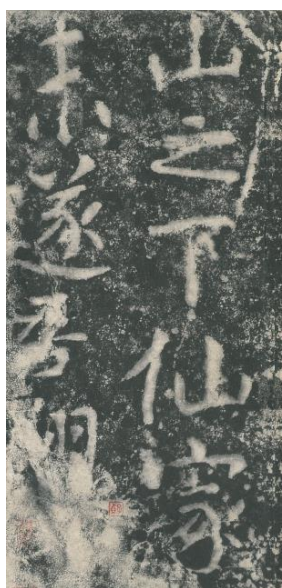 山之下仙家
未遂吾翔